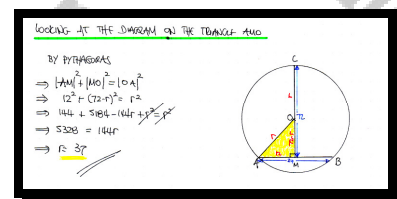 LOOKING AT THE DIAGRAM ON THE TRIANGLE AMO
BY PYTHAGORAS
⇒ |AM|² + |MO|² = |OA|²
⇒ 12² + (72-r)² = r²
⇒ 144 + 5184 - 144r + r² = r²
⇒ 5328 = 144r
⇒ r = 37
C
O
72
r
12
24
A
M
B